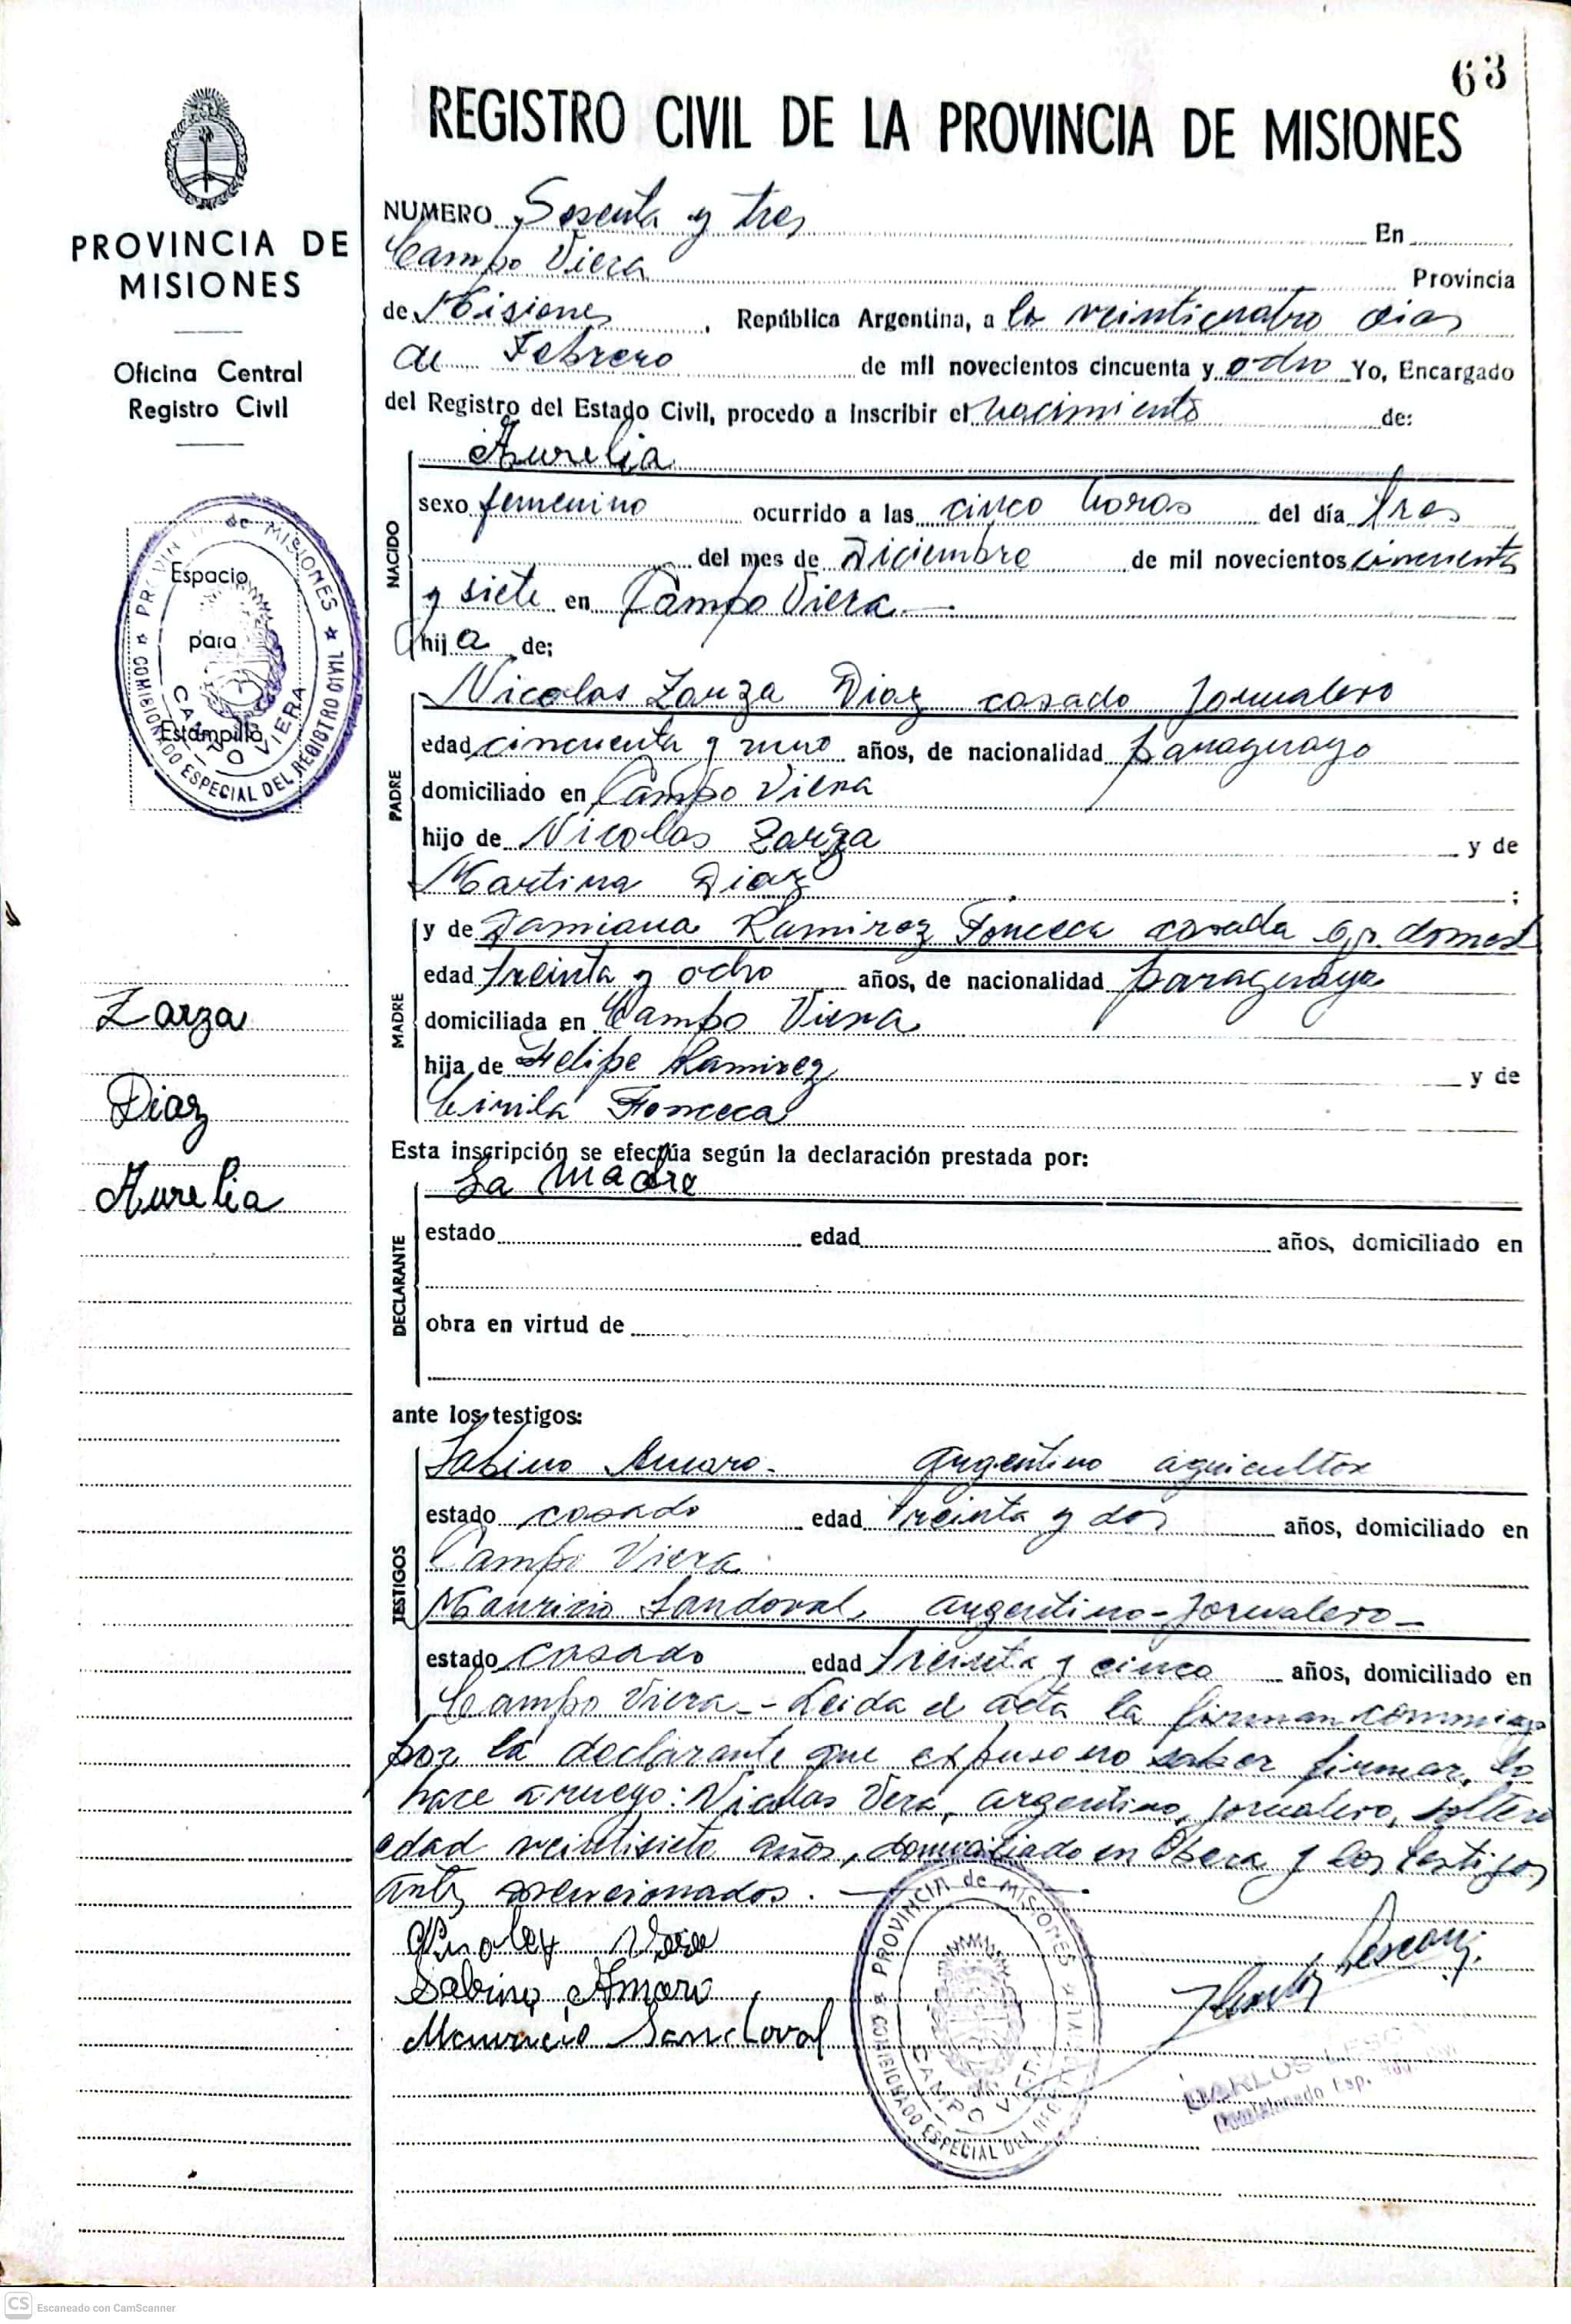 63
REGISTRO CIVIL DE LA PROVINCIA DE MISIONES
PROVINCIA DE
MISIONES
Oficina Central
Registro Civil
PROVINCIA de MISIONES
COMISIONADO ESPECIAL DEL REGISTRO CIVIL
CAMPO VIERA
Espacio
para
Estampilla
Zarza
Diaz
Aurelia
NUMERO Sesenta y tres En
Campo Viera Provincia
de Misiones, República Argentina, a los veinticuatro dias
de Febrero de mil novecientos cincuenta y ocho Yo, Encargado
del Registro del Estado Civil, procedo a inscribir el nacimiento de:
NACIDO
Aurelia
sexo femenino ocurrido a las cinco horas del día tres
del mes de Diciembre de mil novecientos cincuenta
y siete en Campo Viera.—
hija de;
PADRE
Nicolas Zarza Diaz casado Jornalero
edad cincuenta y uno años, de nacionalidad paraguayo
domiciliado en Campo Viera
hijo de Nicolas Zarza y de
Martina Diaz ;
MADRE
y de Damiana Ramirez Fonceca casada domest
edad treinta y ocho años, de nacionalidad paraguaya
domiciliada en Campo Viera
hija de Felipe Ramirez y de
Cirila Fonceca
Esta inscripción se efectúa según la declaración prestada por:
DECLARANTE
La madre
estado edad años, domiciliado en
obra en virtud de
ante los testigos:
TESTIGOS
Sabino Amaro. argentino agricultor
estado casado edad treinta y dos años, domiciliado en
Campo Viera
Mauricio Sandoval, argentino-jornalero—
estado casado edad treinta y cinco años, domiciliado en
Campo Viera.- Leida el acta la firman conmigo
por la declarante que expuso no saber firmar, lo
hace a ruego: Nicolas Vera, argentino, jornalero, soltero
edad veintisiete años, domiciliado en Obera y los testigos
antes mencionados.—
Vera
Sabino Amaro
Mauricio Sandoval
PROVINCIA de MISIONES
COMISIONADO ESPECIAL DEL REGISTRO CIVIL
CAMPO VIERA
CARLOS
Comisionado Esp.
CS Escaneado con CamScanner